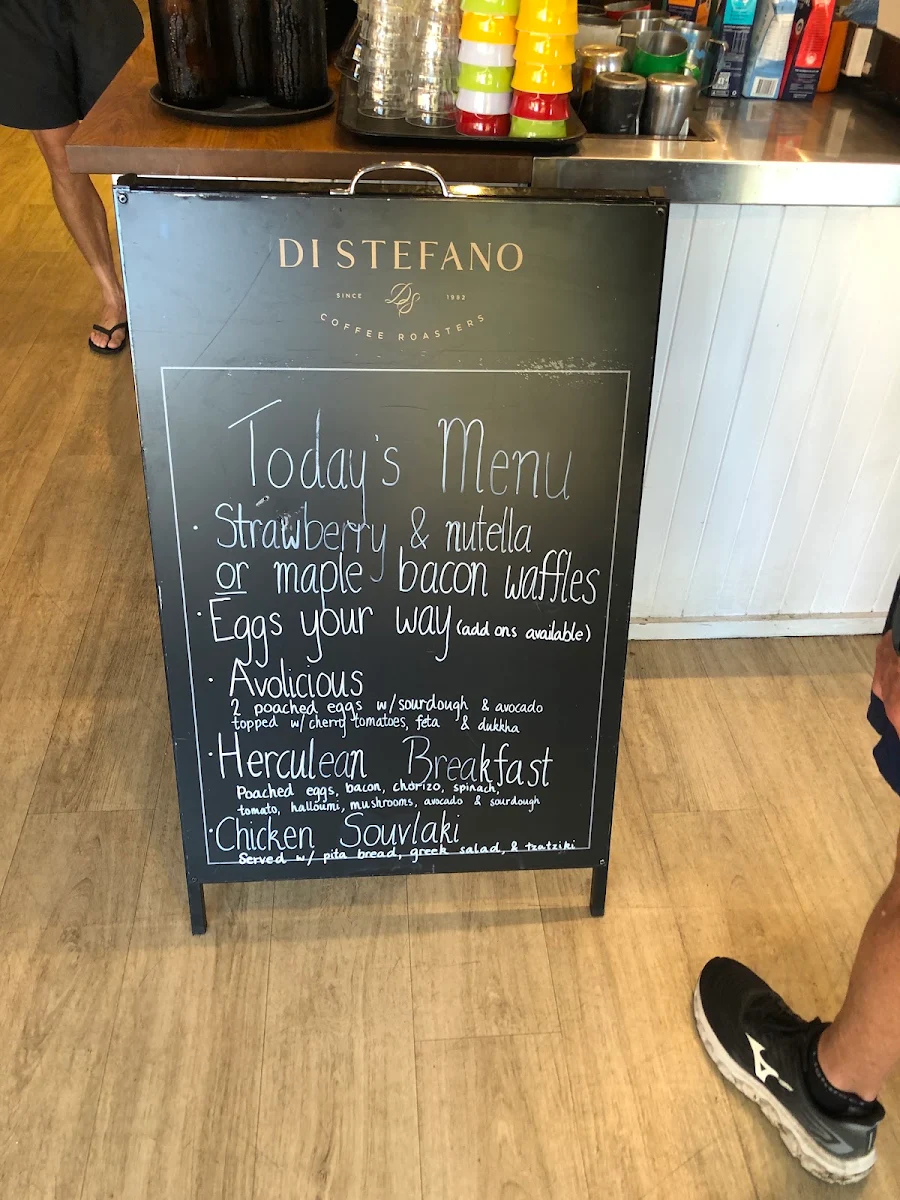 DI STEFANO
SINCE DS 1992
COFFEE ROASTERS
Today's Menu
· Strawberry & nutella
or maple bacon waffles
· Eggs your way (add ons available)
· Avolicious
2 poached eggs w/sourdough & avocado
topped w/ cherry tomatoes, feta & dukkha
· Herculean Breakfast
Poached eggs, bacon, chorizo, spinach,
tomato, halloumi, mushrooms, avocado & sourdough
· Chicken Souvlaki
Served w/ pita bread, greek salad, & tzatziki